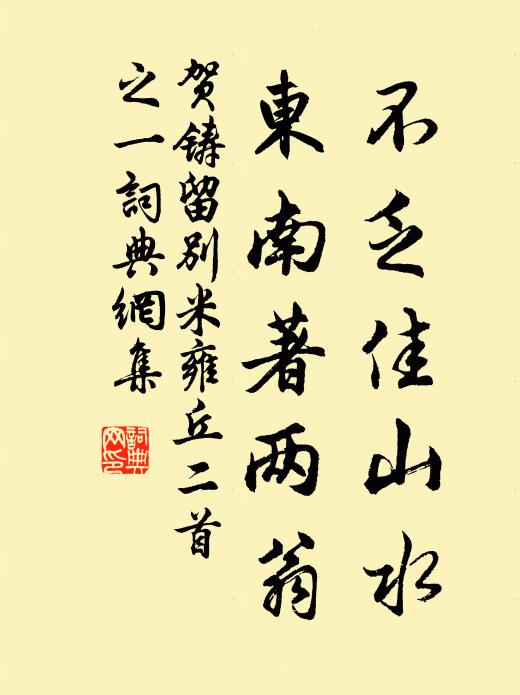 不乏佳山水
東南著两翁
贺鋳留别米雍丘二首
之一詞典網集
詞典
网印